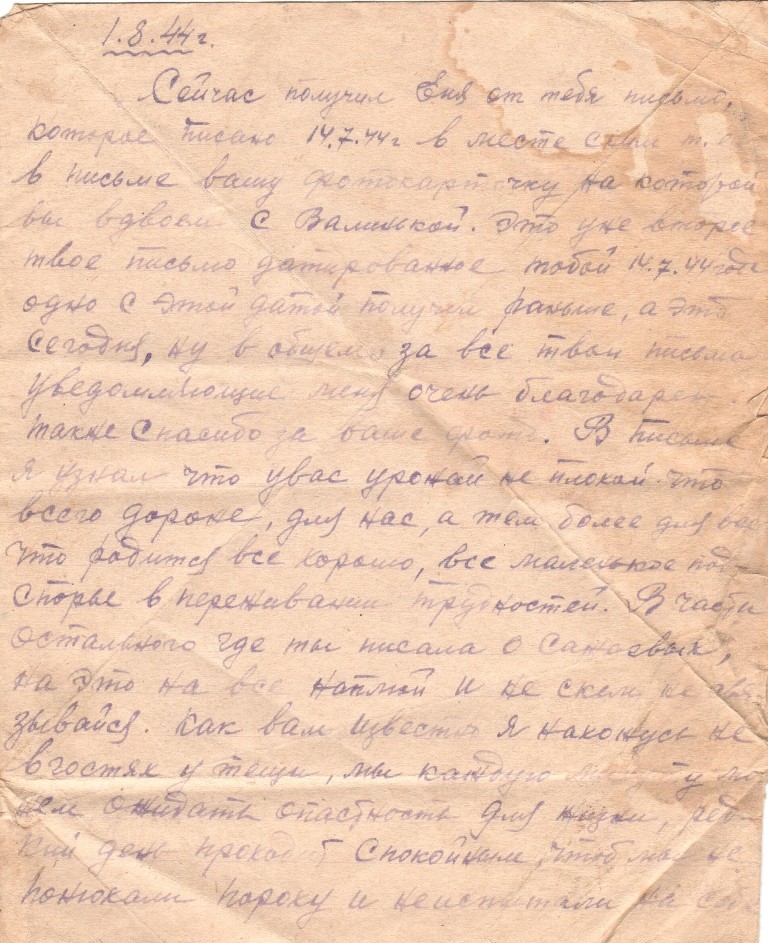 1.8.44г.
Сейчас получил Еня от тебя письмо,
которое писано 14.7.44г в месте с ним т.е
в письме вашу фотокарточку на которой
вы вдвоем с Валинькой. Это уже второе
твое письмо датированное тобой 14.7.44года
одно с этой датой получил раньше, а это
сегодня, ну в общем за все твои письма
уведомляющие меня очень благодарен.
также спасибо за ваше фото. В письме
я узнал что увас урожай не плохой. что
всего дороже, для нас, а тем более для вас
что родится все хорошо, все маленькое под
спорье в переживании трудностей. В части
остального где ты писала о
на это на все наплюй и не с кем не свя
зывайся. Как вам известно я нахожусь не
вгостях у тещи, мы каждую минуту мо
жем ожидать опастность для жизни, ред-
кий день проходит спокойным, чтоб мы не
понюхали пороху и неиспытали на себе